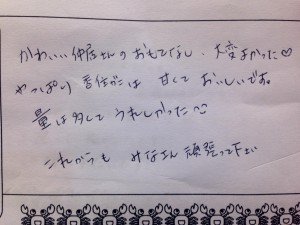 かわいい仲居さんのおもてなし、大変よかった♡
やっぱり 香住ガニは 甘くて おいしいですね。
量は多くて うれしかった
これからも みなさん 頑張って下さい